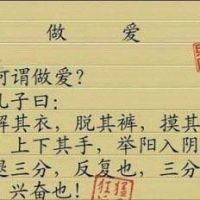 做 爱
何谓做爱?
孔子曰:
解其衣，脱其裤，摸其
上下其手，举阳入阴
退三分，反复也，三分
兴奋也!